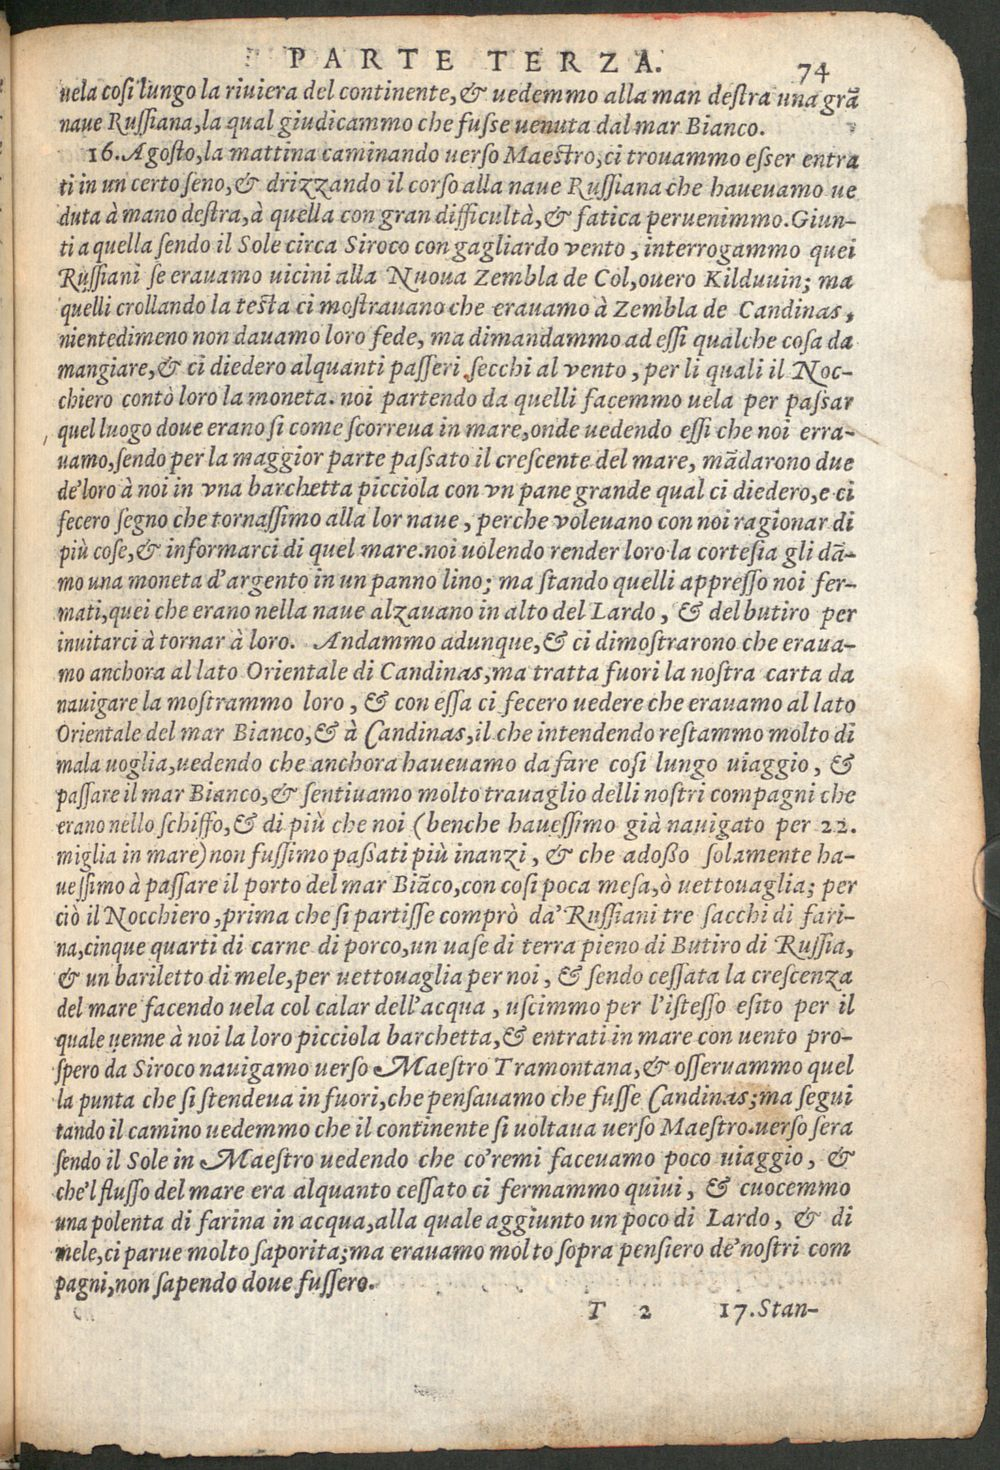 PARTE TERZA. 74
uela cosi lungo la riuiera del continente,& uedemmo alla man destra una grã
naue Russiana,la qual giudicammo che fusse uenuta dal mar Bianco.
16. Agosto,la mattina caminando uerso Maestro,ci trouammo esser entra
ti in un certo seno,& drizzando il corso alla naue Russiana che haueuamo ue
duta à mano destra,à quella con gran difficultà,& fatica peruenimmo.Giun-
ti a quella sendo il Sole circa Siroco con gagliardo vento, interrogammo quei
Russiani se erauamo uicini alla Nuoua Zembla de Col,ouero Kilduuin; ma
quelli crollando la testa ci mostrauano che erauamo à Zembla de Candinas,
nientedimeno non dauamo loro fede, ma dimandammo ad essi qualche cosa da
mangiare,& ci diedero alquanti passeri secchi al vento, per li quali il Noc-
chiero contò loro la moneta. noi partendo da quelli facemmo uela per passar
quel luogo doue erano si come scorreua in mare,onde uedendo essi che noi erra-
uamo,sendo per la maggior parte passato il crescente del mare, mãdarono due
de'loro à noi in vna barchetta picciola con vn pane grande qual ci diedero,e ci
fecero segno che tornassimo alla lor naue, perche voleuano con noi ragionar di
più cose,& informarci di quel mare.noi uolendo render loro la cortesia gli dã-
mo una moneta d'argento in un panno lino; ma stando quelli appresso noi fer-
mati,quei che erano nella naue alzauano in alto del Lardo, & del butiro per
inuitarci à tornar à loro. Andammo adunque,& ci dimostrarono che eraua-
mo anchora al lato Orientale di Candinas,ma tratta fuori la nostra carta da
nauigare la mostrammo loro, & con essa ci fecero uedere che erauamo al lato
Orientale del mar Bianco,& à Candinas,il che intendendo restammo molto di
mala uoglia,uedendo che anchora haueuamo da fare cosi lungo uiaggio, &
passare il mar Bianco,& sentiuamo molto trauaglio delli nostri compagni che
erano nello schiffo,& di più che noi (benche hauessimo già nauigato per 22.
miglia in mare) non fussimo paßati più inanzi, & che adoßo solamente ha-
uessimo à passare il porto del mar Biãco,con cosi poca mesa,ò uettouaglia; per
ciò il Nocchiero,prima che si partisse comprò da'Russiani tre sacchi di fari-
na,cinque quarti di carne di porco,un uase di terra pieno di Butiro di Russia,
& un bariletto di mele,per uettouaglia per noi, & sendo cessata la crescenza
del mare facendo uela col calar dell'acqua, uscimmo per l'istesso esito per il
quale uenne à noi la loro picciola barchetta,& entrati in mare con uento pro-
spero da Siroco nauigamo uerso Maestro Tramontana,& osseruammo quel
la punta che si stendeua in fuori,che pensauamo che fusse Candinas;ma segui
tando il camino uedemmo che il continente si uoltaua uerso Maestro.uerso sera
sendo il Sole in Maestro uedendo che co'remi faceuamo poco uiaggio, &
che'l flusso del mare era alquanto cessato ci fermammo quiui, & cuocemmo
una polenta di farina in acqua,alla quale aggiunto un poco di Lardo, & di
mele,ci parue molto saporita;ma erauamo molto sopra pensiero de'nostri com
pagni,non sapendo doue fussero.
T 2 17.Stan-